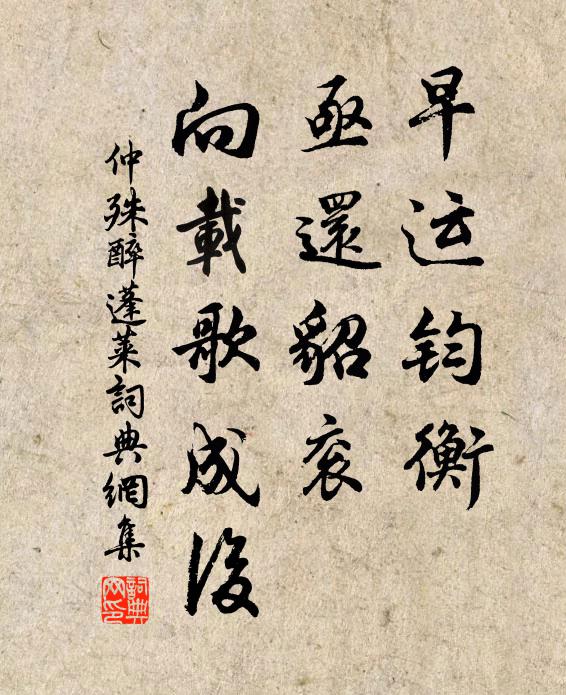 早运钧衡
亟還貂衮
向載歌成後
仲殊醉蓬萊詞典網集
詞典网印